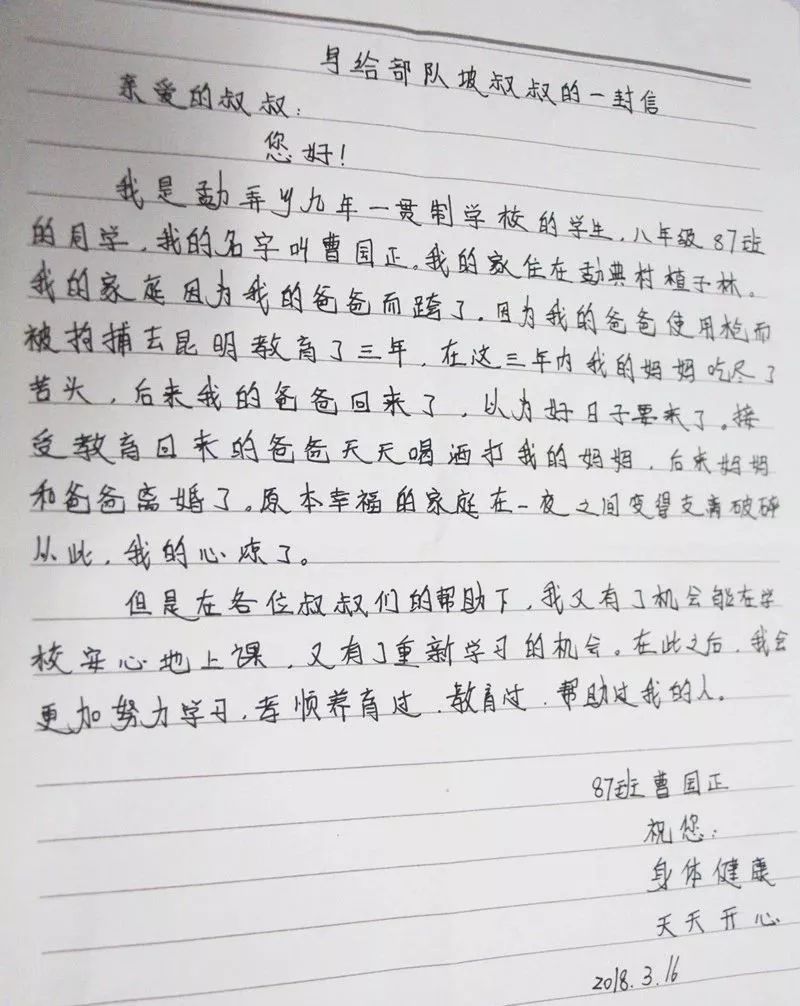 写给部队坡叔叔的一封信
亲爱的叔叔:
您好!
我是勐弄乡九年一贯制学校的学生,八年级87班
的同学,我的名字叫曹国正。我的家住在勐典村楂子林。
我的家庭因为我的爸爸而跨了。因为我的爸爸使用枪而
被拘捕去昆明教育了三年,在这三年内我的妈妈吃尽了
苦头,后来我的爸爸回来了,以为好日子要来了。接
受教育回来的爸爸天天喝洒打我的妈妈,后来妈妈
和爸爸离婚了。原本幸福的家庭在一夜之间变得支离破碎
从此,我的心烦了。
但是在各位叔叔们的帮助下,我又有了机会能在学
校安心地上课,又有了重新学习的机会。在此之后,我会
更加努力学习,孝顺养育过、教育过、帮助过我的人。
87班曹国正
祝您:
身体健康
天天开心
2018.3.16